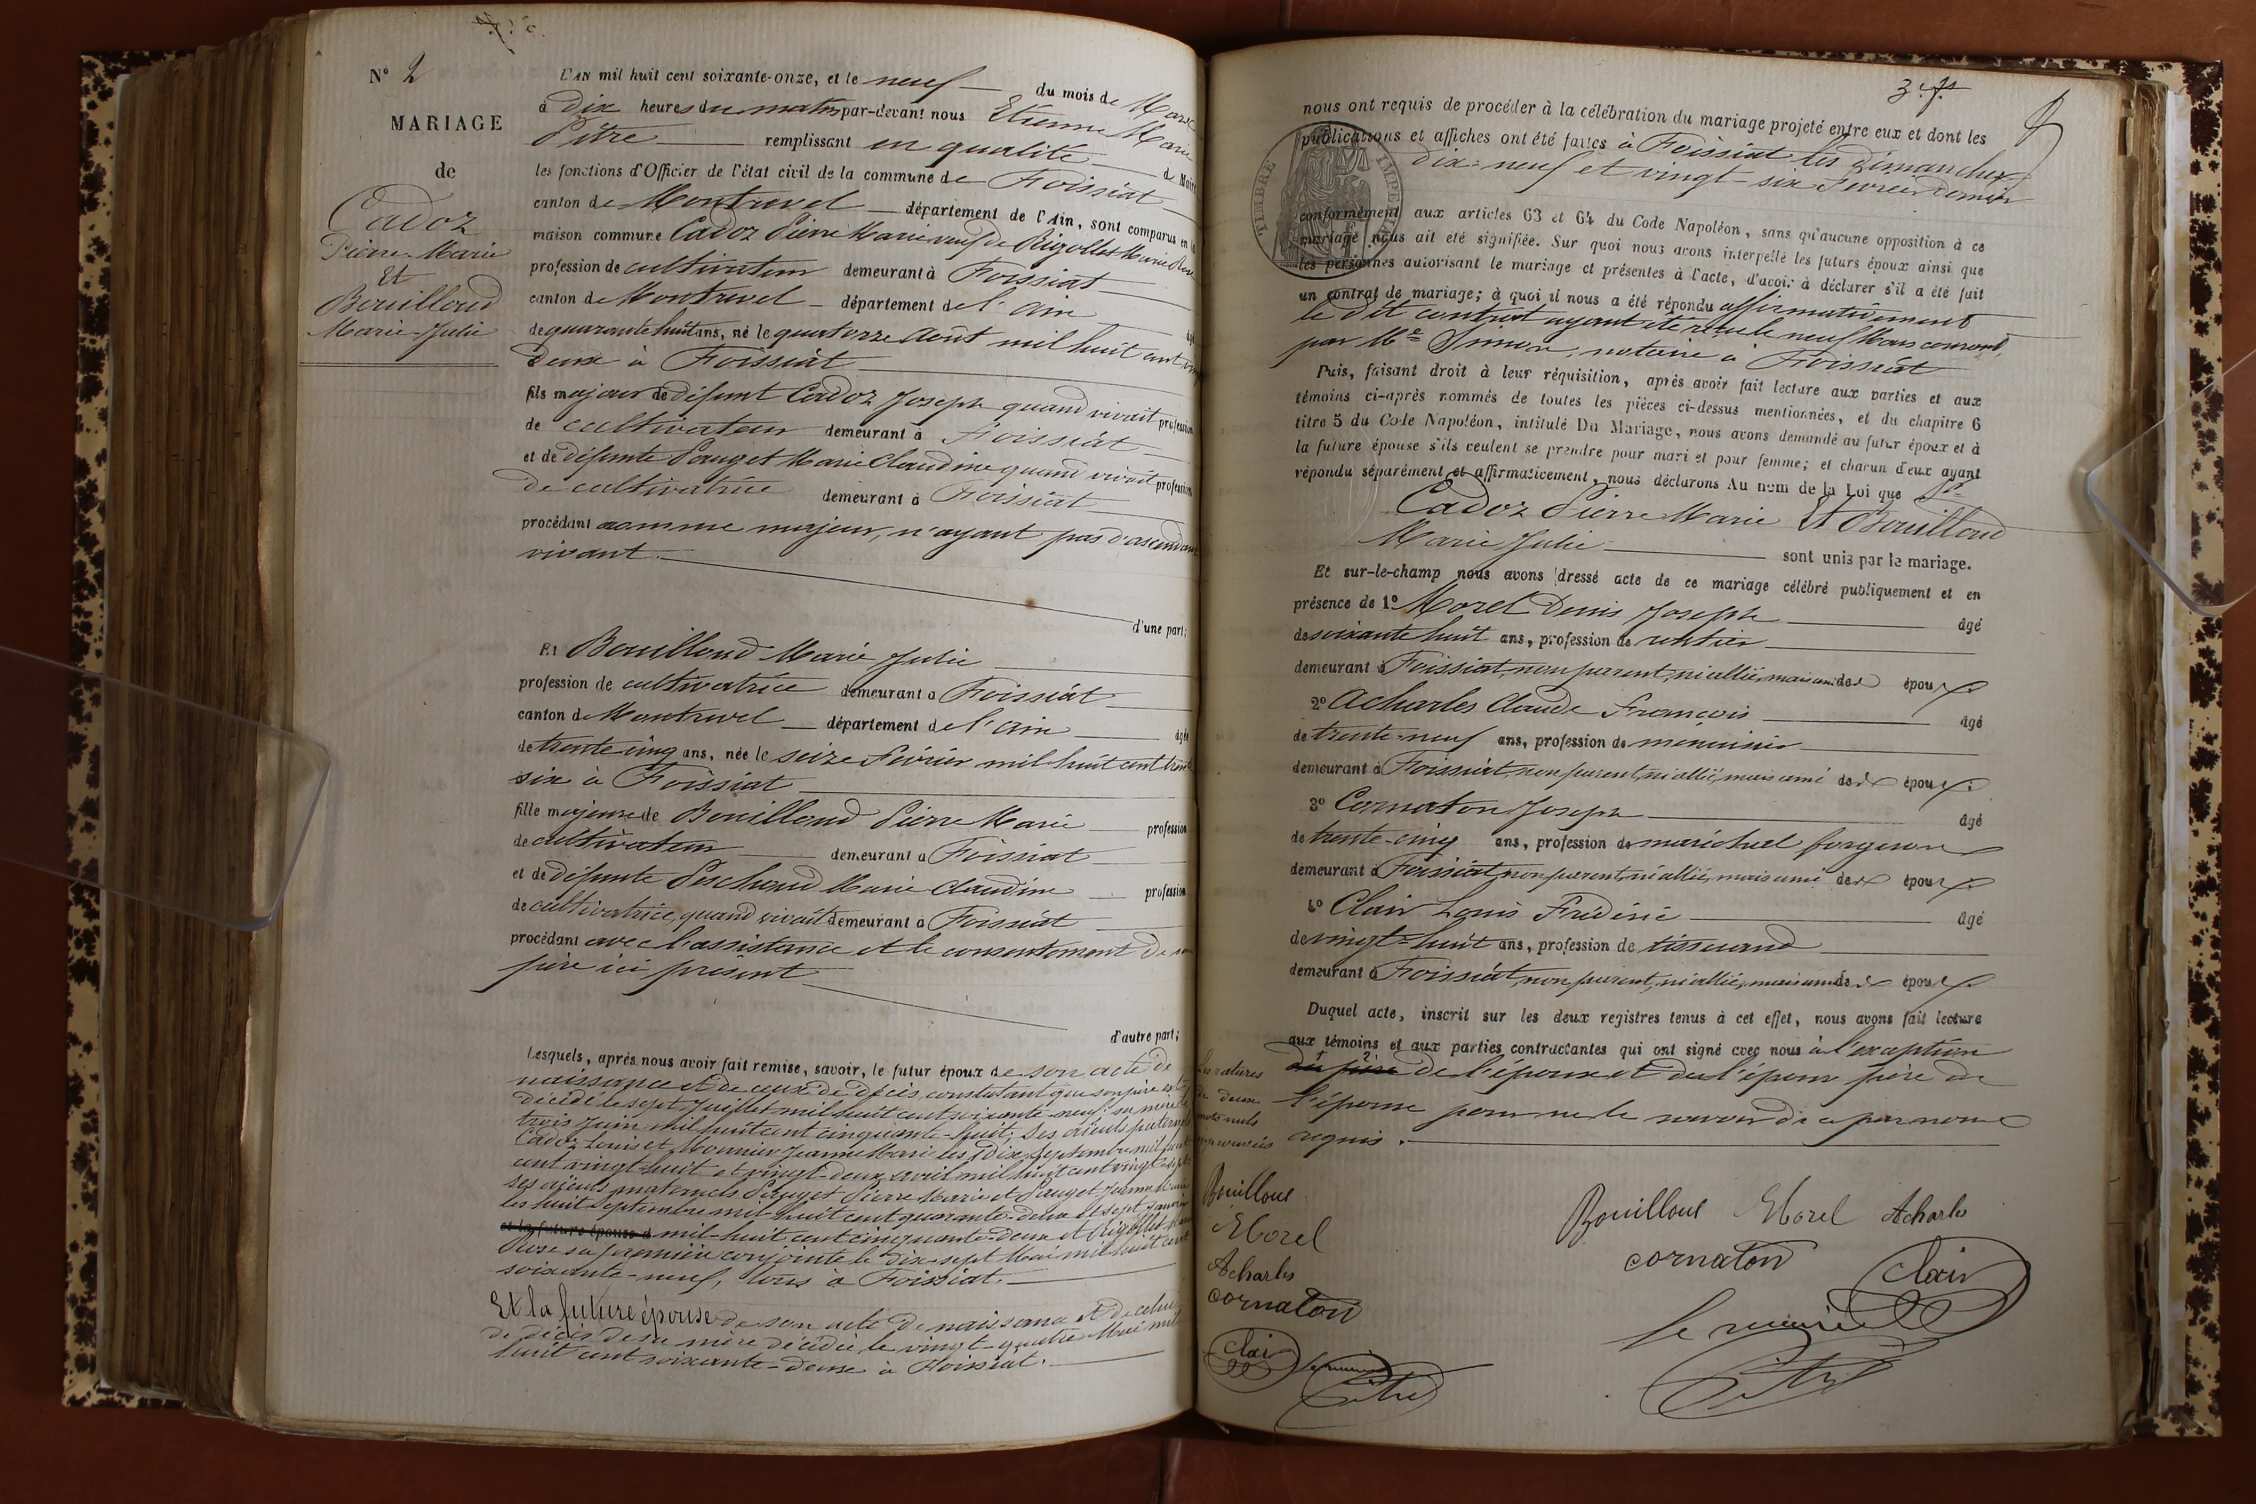 N° 2
MARIAGE
de
Cadoz
Pierre-Marie
Et
Bouilloud
Marie-Julie
L'AN mil huit cent soixante-onze, et le neuf du mois de Mars
à dix heures du matin par-devant nous Etienne Marie
Pitre remplissant en qualité de Maire
les fonctions d'Officier de l'état civil de la commune de Foissiat
canton de Montrevel département de l'Ain, sont comparus en la
maison commune Cadoz Pierre Marie veuf de Rigollet Marie Rose
profession de cultivateur demeurant à Foissiat
canton de Montrevel département de l'ain âgé
de quarante huit ans, né le quatorze Août mil huit cent vingt
deux à Foissiat
fils majeur de défunt Cadoz Joseph quand vivait profession
de cultivateur demeurant à Foissiat
et de défunte Pauget Marie Claudine quand vivait profession
de cultivatrice demeurant à Foissiat
procédant comme majeur, n'ayant pas d'ascendant
vivant.
d'une part;
Et Bouilloud Marie Julie
profession de cultivatrice demeurant à Foissiat
canton de Montrevel département de l'ain âgée
de trente cinq ans, née le seize Février mil huit cent trente
six à Foissiat
fille majeure de Bouilloud Pierre Marie profession
de cultivateur demeurant à Foissiat
et de défunte Perchoud Marie Claudine profession
de cultivatrice, quand vivait demeurant à Foissiat
procédant avec l'assistance et le consentement de son
père ici présent
d'autre part;
Lesquels, après nous avoir fait remise, savoir, le futur époux de son acte de
naissance et de ceux de décès constatant que son père est
décédé le sept Juillet mil huit cent soixante-neuf; sa mère le
trois Juin mil huit cent cinquante-huit; ses aïeuls paternels
Cadoz Louis et Monnier Jeanne Marie les dix Septembre mil huit
cent vingt-huit et vingt-deux avril mil huit cent vingt-sept
ses aïeuls maternels Pauget Pierre Marie et Pauget Jeanne Marie
les huit Septembre mil huit cent quarante-deux et sept Janvier
et la future épouse d mil-huit cent cinquante-deux et Rigollet Marie
Rose sa première conjointe le dix-sept Mai mil huit cent
soixante-neuf, tous à Foissiat.
Et la future épouse de son acte de naissance et de celui
de décès de sa mère décédée le vingt-quatre Mai mil
huit cent soixante-deux à Foissiat.
3e fs
nous ont requis de procéder à la célébration du mariage projeté entre eux et dont les
publications et affiches ont été faites à Foissiat les dimanches
dix-neuf et vingt-six Février dernier
TIMBRE IMPERIAL
conformément aux articles 63 et 64 du Code Napoléon, sans qu'aucune opposition à ce
mariage nous ait été signifiée. Sur quoi nous avons interpellé les futurs époux ainsi que
les personnes autorisant le mariage et présentes à l'acte, d'avoir à déclarer s'il a été fait
un contrat de mariage; à quoi il nous a été répondu affirmativement
le dit contrat ayant été reçu le neuf Mars courant,
par Me Simon, notaire à Foissiat
Puis, faisant droit à leur réquisition, après avoir fait lecture aux parties et aux
témoins ci-après nommés de toutes les pièces ci-dessus mentionnées, et du chapitre 6
titre 5 du Code Napoléon, intitulé Du Mariage, nous avons demandé au futur époux et à
la future épouse s'ils veulent se prendre pour mari et pour femme; et chacun d'eux ayant
répondu séparément et affirmativement, nous déclarons Au nom de la Loi que
Cadoz Pierre Marie Et Bouilloud
Marie Julie sont unis par le mariage.
Et sur-le-champ nous avons dressé acte de ce mariage célébré publiquement et en
présence de 1° Morel Denis Joseph âgé
de soixante huit ans, profession de rentier
demeurant à Foissiat, non parent, ni allié, mais ami des époux.
2° Acharles Claude François âgé
de trente-neuf ans, profession de menuisier
demeurant à Foissiat, non parent, ni allié, mais ami des époux.
3° Cornaton Joseph âgé
de trente-cinq ans, profession de maréchal forgeron
demeurant à Foissiat, non parent, ni allié, mais ami des époux.
4° Clair Louis Frédéric âgé
de vingt-huit ans, profession de tisserand
demeurant à Foissiat, non parent, ni allié, mais ami des époux.
Duquel acte, inscrit sur les deux registres tenus à cet effet, nous avons fait lecture
aux témoins et aux parties contractantes qui ont signé avec nous à l'exception
du père de l'époux et de l'épouse père de
l'épouse pour ne le savoir de ce par nous
requis.
Les ratures
de deux
mots nuls
approuvées
Bouilloud
Morel
Acharles
cornaton
Clair
Le maire
Pitre
Bouilloud Morel Acharles
cornaton
Clair
Le maire
Pitre